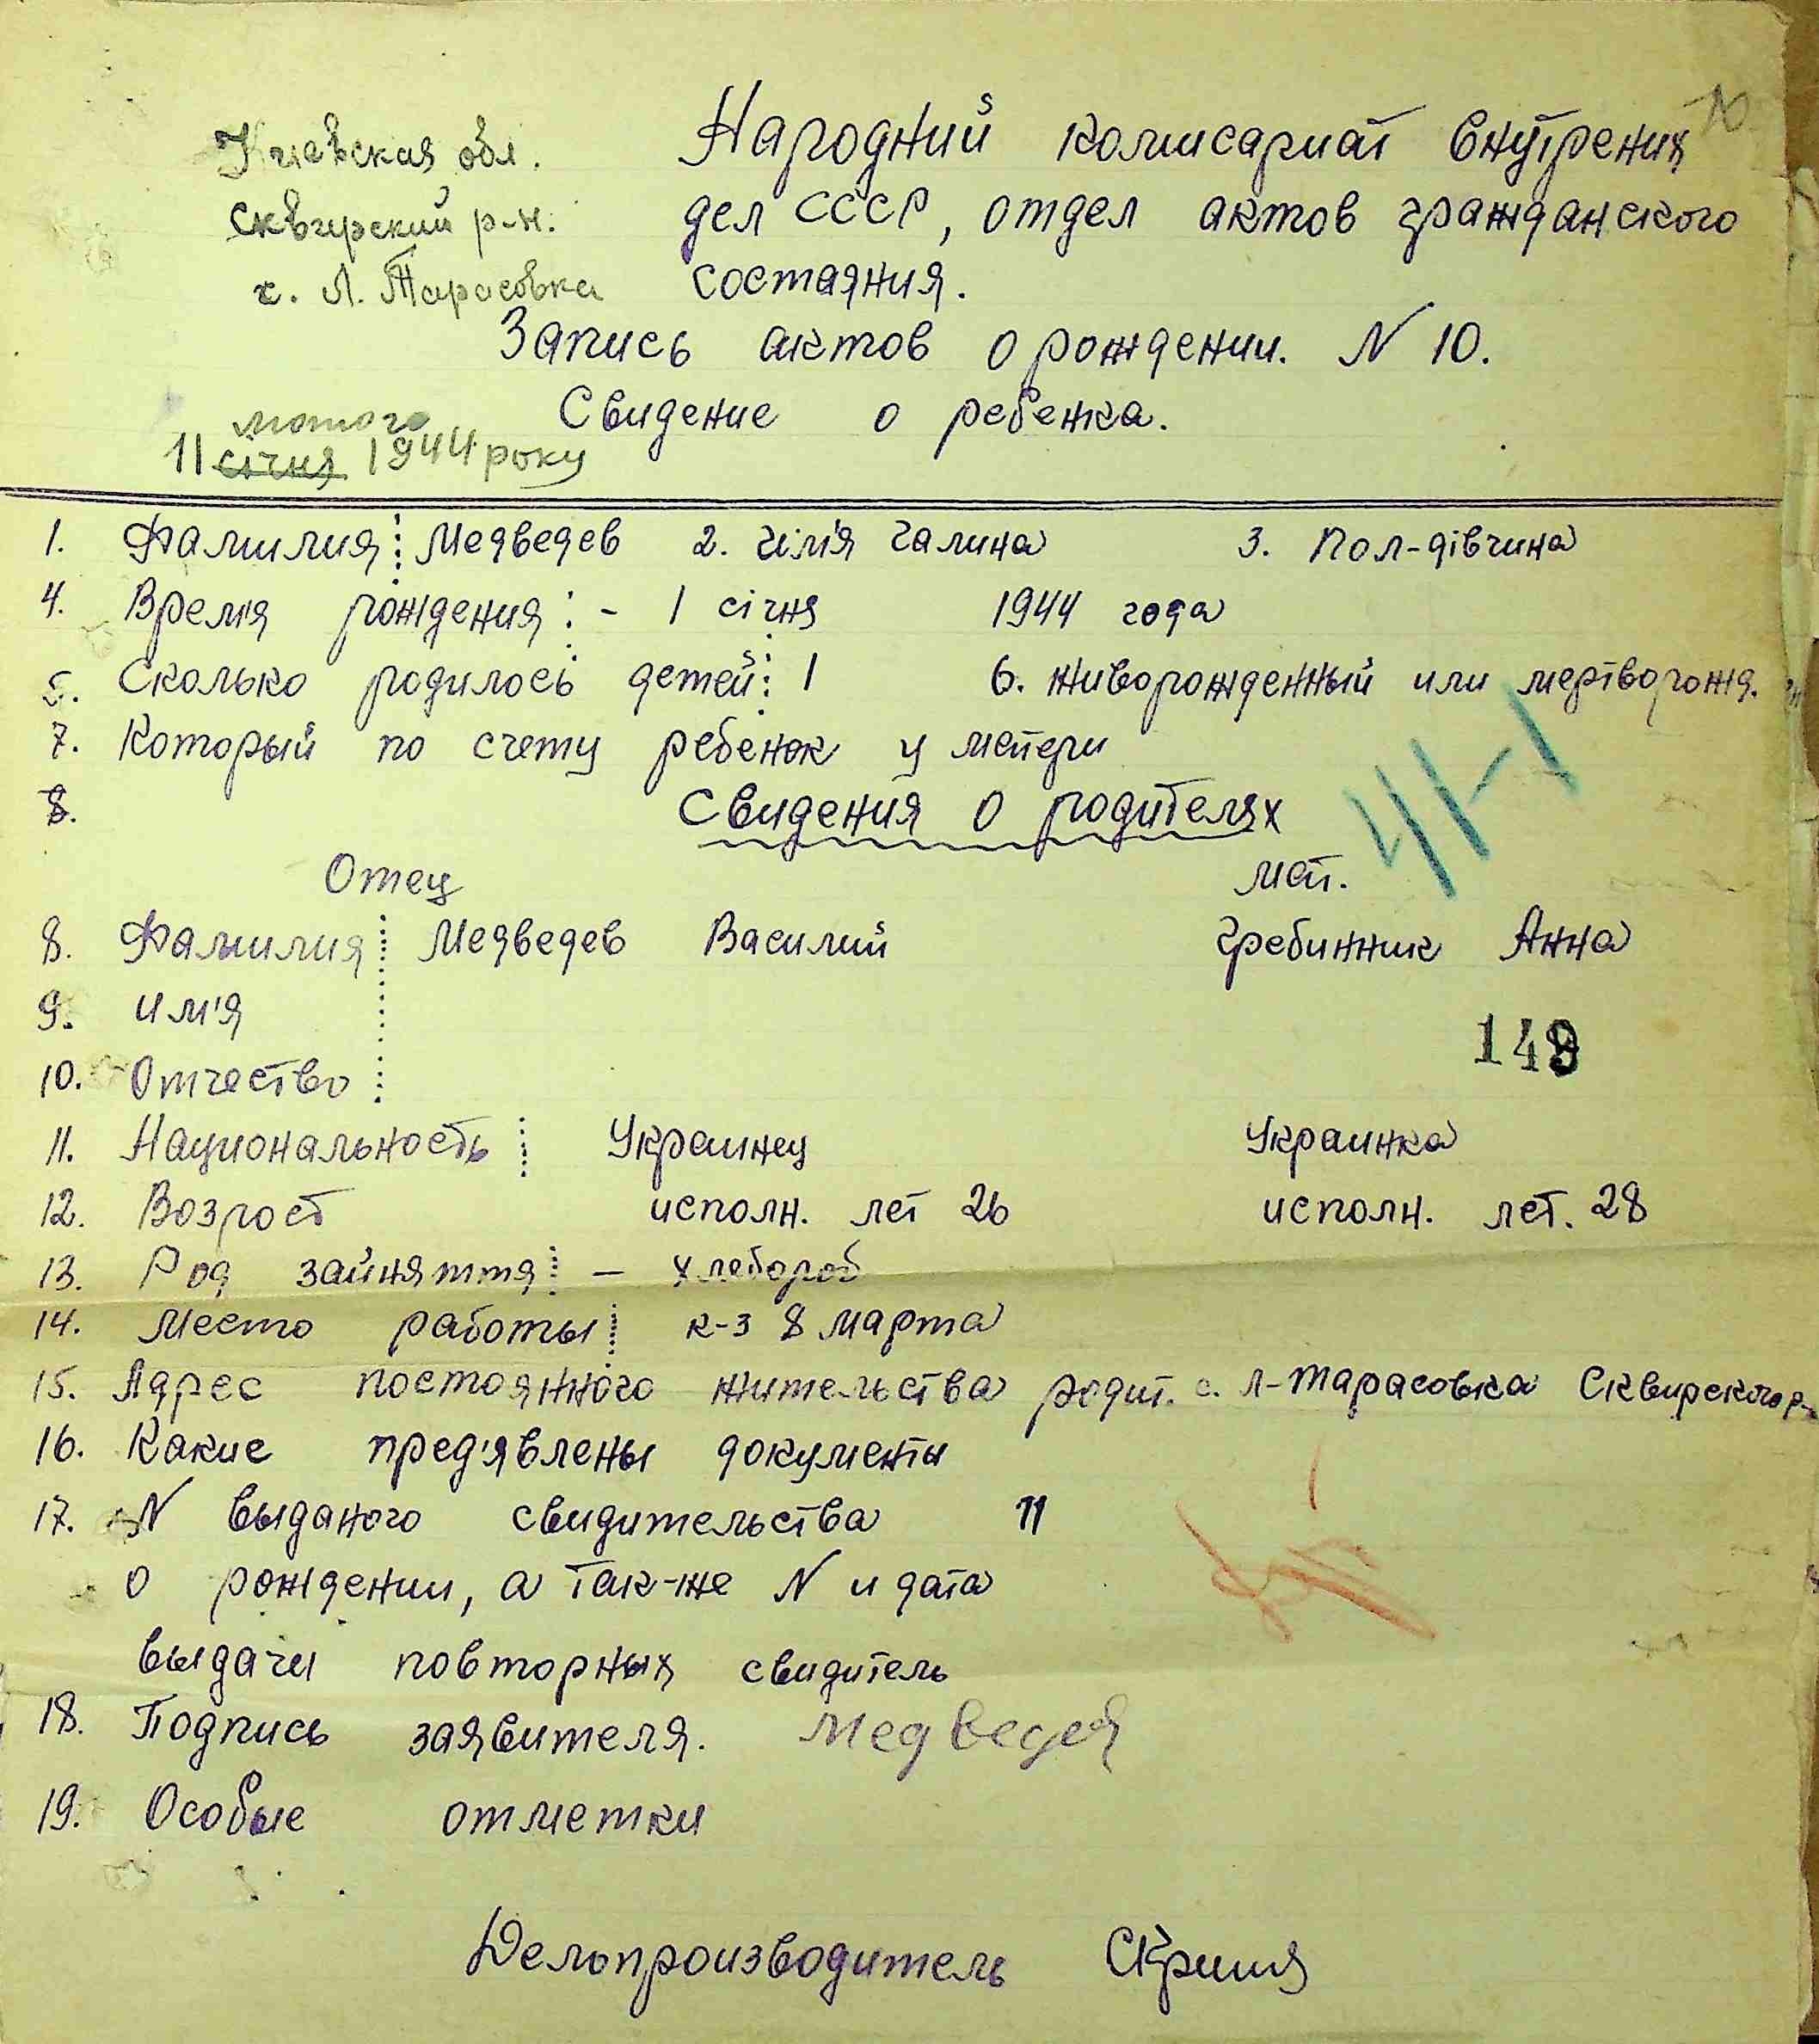 Киевская обл.
Сквирский р-н.
с. Л. Тарасовка
Народний комисариат внутрених
дел СССР, отдел актов гражданского
состаяния.
Запись актов о рождении. N 10.
Свидение о ребенка.
лютого
11 січня 1944 року
1. Фамилия: Медведев 2. Имʼя Галина 3. Пол-дівчина
4. Время рождения: - 1 січня 1944 года
5. Сколько родилось детей: 1 6. живорожденный или мертворожд.
7. Который по счету ребенок у матери
8. Свидения о родителях
41-1
Отец мат.
8. Фамилия Медведев Василий Гребинник Анна
9. имʼя
149
10. Отчество
11. Национальность Украинец Украинка
12. Возрост исполн. лет 26 исполн. лет. 28
13. Род зайняття - хлебороб
14. Место работы к-з 8 марта
15. Адрес постоянного жительства родит. с. Л-Тарасовка Сквирского р-
16. Какие предʼявлены документы
17. N выданого свидительства 11
о рождении, а так-же N и дата
выдачи повторных свидитель
18. Подпись заявителя. Медведев
19. Особые отметки
Делопроизводитель